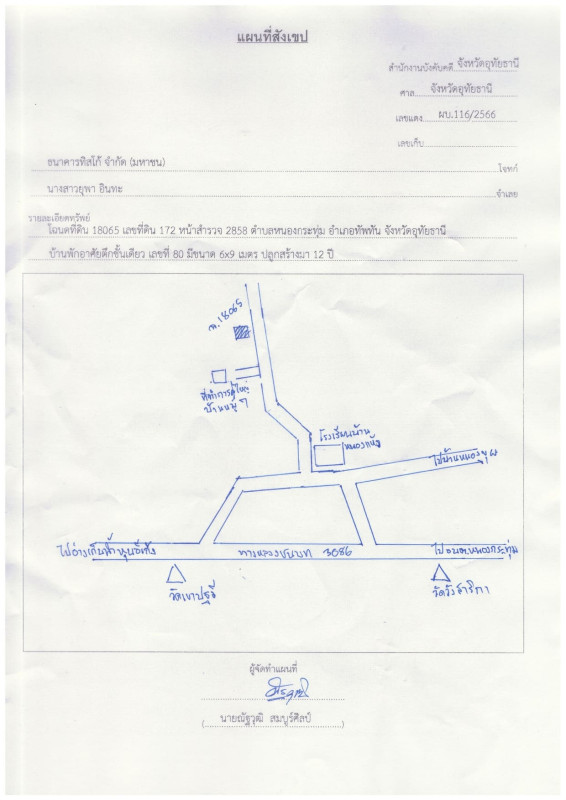 แผนที่สังเขป
สำนักงานบังคับคดี จังหวัดอุทัยธานี
ศาล จังหวัดอุทัยธานี
เลขแดง ผบ.116/2566
เลขเก็บ
ธนาคารทิสโก้ จำกัด (มหาชน) โจทก์
นางสาวยุพา อินทะ จำเลย
รายละเอียดทรัพย์
โฉนดที่ดิน 18065 เลขที่ดิน 172 หน้าสำรวจ 2858 ตำบลหนองกระทุ่ม อำเภอทัพทัน จังหวัดอุทัยธานี
บ้านพักอาศัยตึกชั้นเดียว เลขที่ 80 มีขนาด 6x9 เมตร ปลูกสร้างมา 12 ปี
18065
ที่ทำการผู้ใหญ่
บ้านหมู่ 7
โรงเรียนบ้าน
ไปบ้านหนอง
ไปอ่างเก็บน้ำ
ทางหลวงชนบท 3086
ไปอบต.หนองกระทุ่ม
วัดเขาปฐวี
วัดวังสาริกา
ผู้จัดทำแผนที่
(นายณัฐวุฒิ สมบูร์ศิลป์)